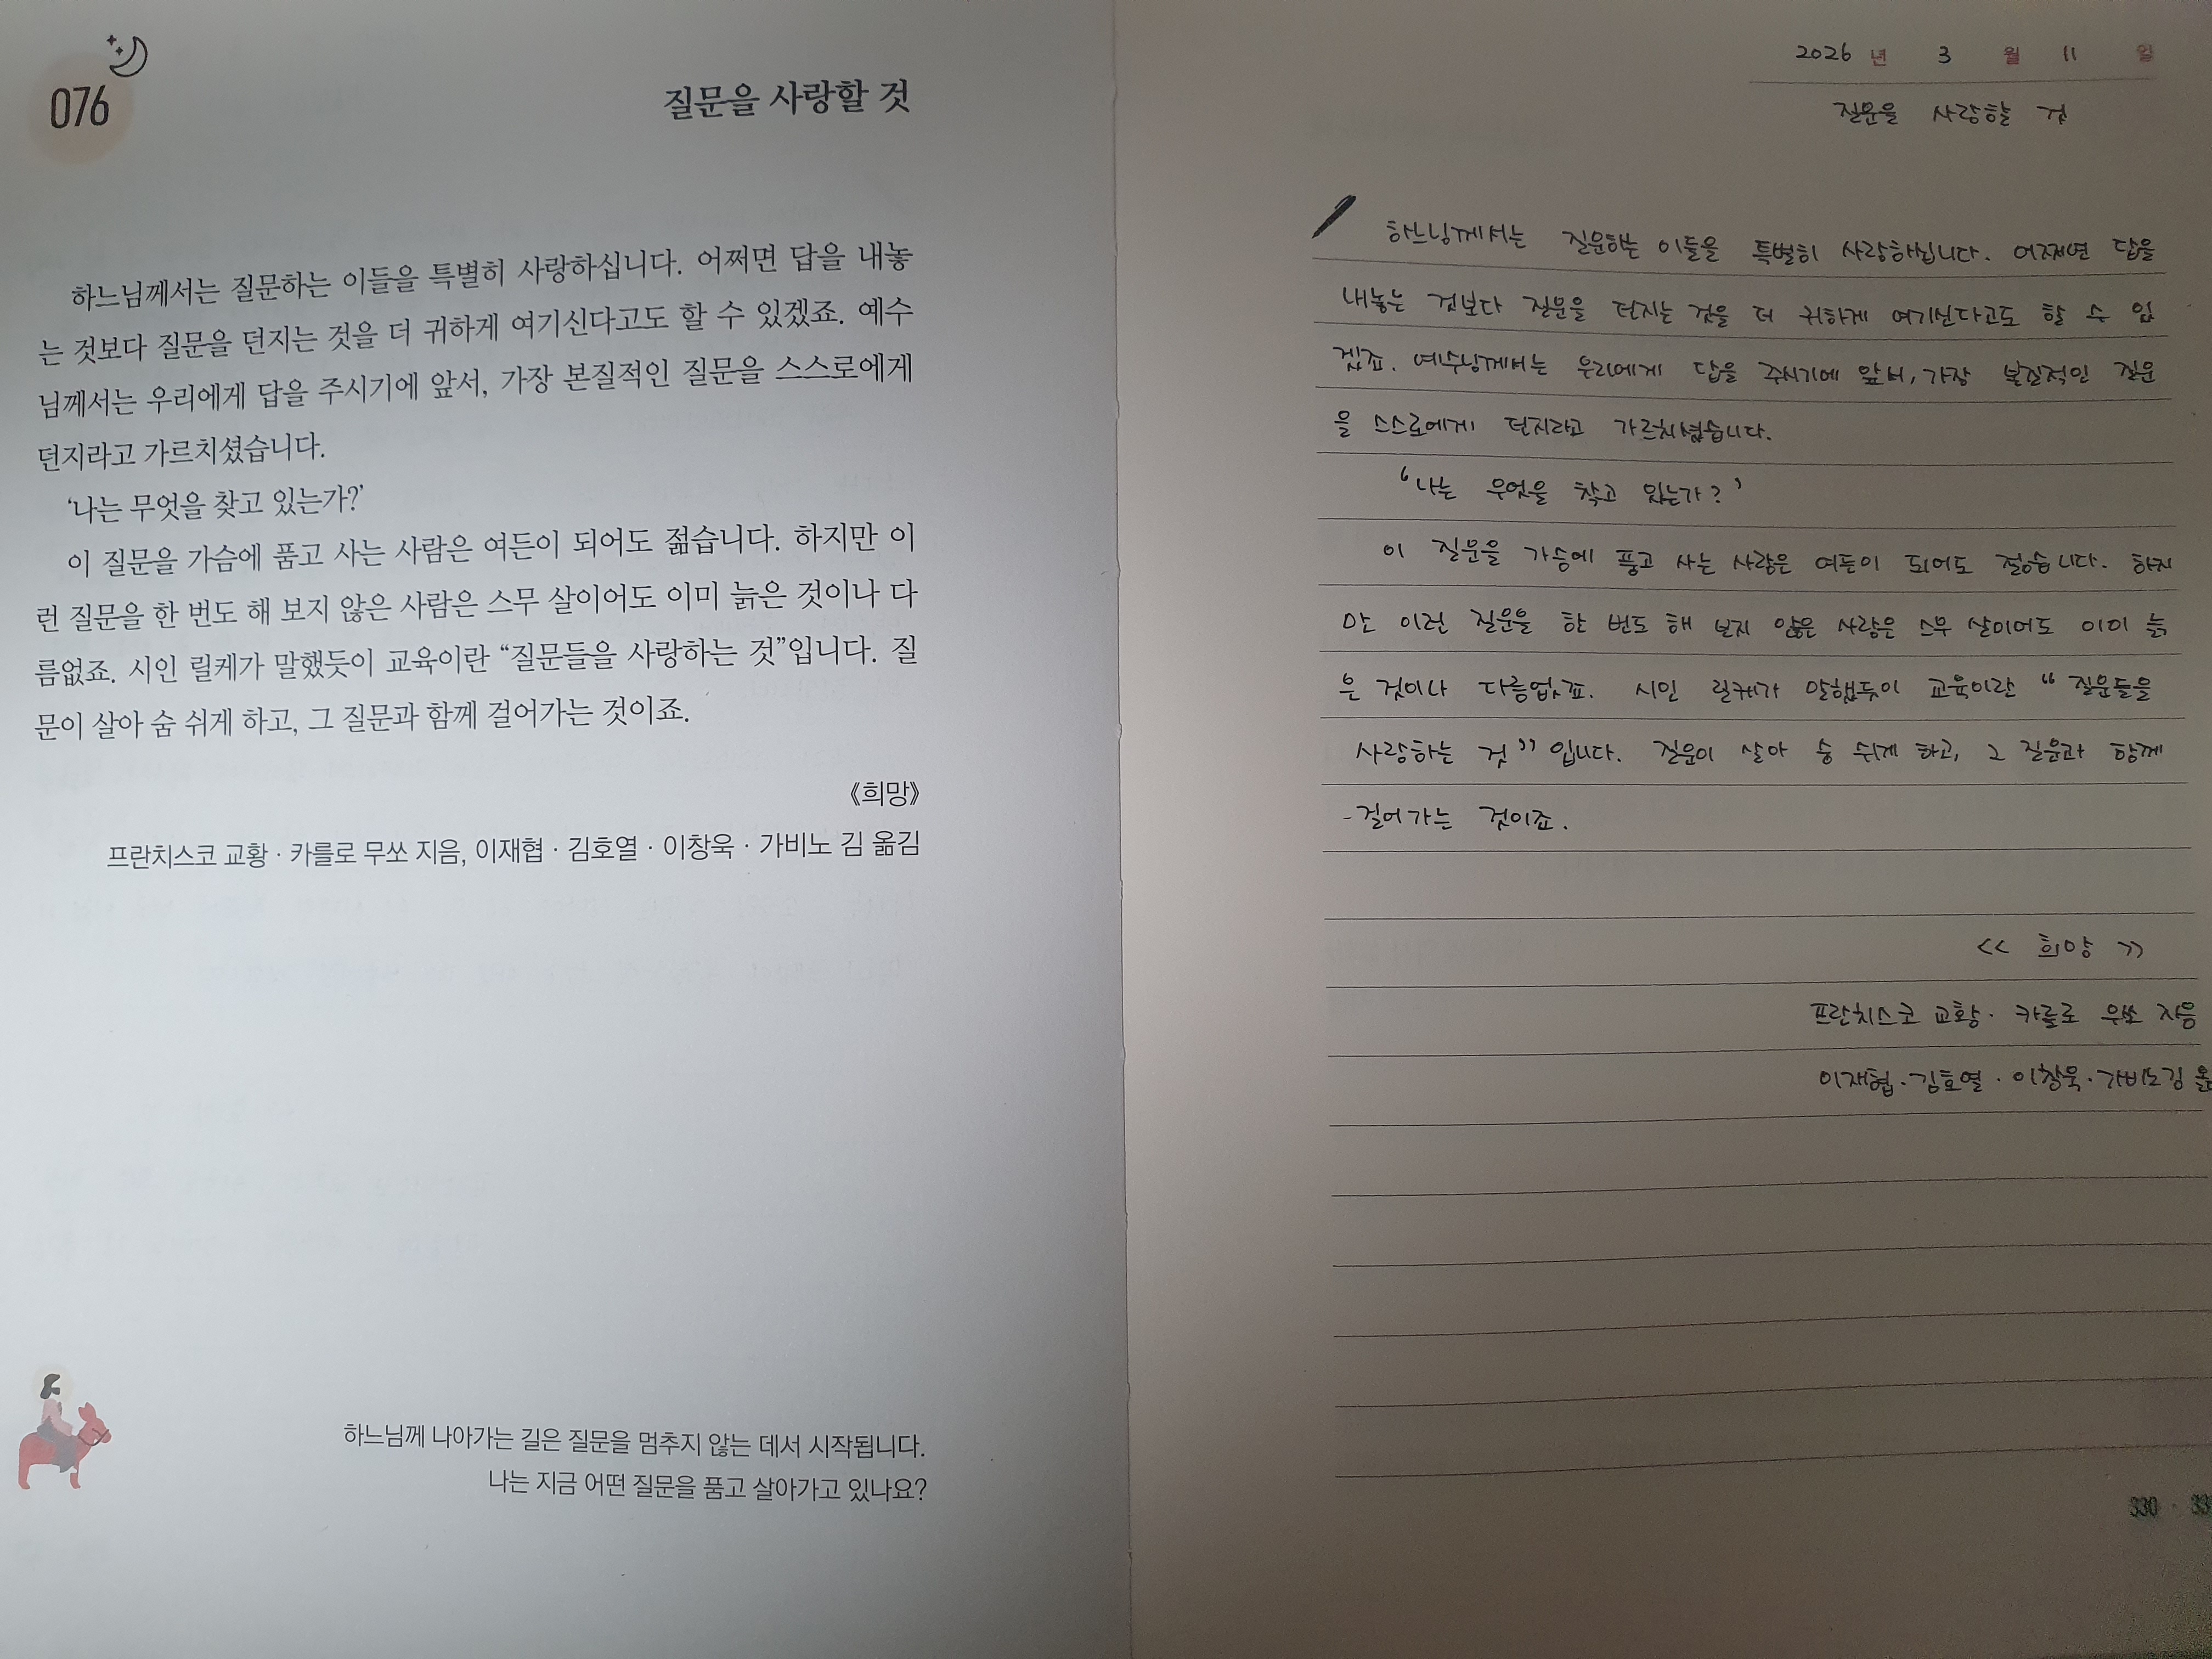 076
질문을 사랑할 것
하느님께서는 질문하는 이들을 특별히 사랑하십니다. 어쩌면 답을 내놓
는 것보다 질문을 던지는 것을 더 귀하게 여기신다고도 할 수 있겠죠. 예수
님께서는 우리에게 답을 주시기에 앞서, 가장 본질적인 질문을 스스로에게
던지라고 가르치셨습니다.
‘나는 무엇을 찾고 있는가?’
이 질문을 가슴에 품고 사는 사람은 여든이 되어도 젊습니다. 하지만 이
런 질문을 한 번도 해 보지 않은 사람은 스무 살이어도 이미 늙은 것이나 다
름없죠. 시인 릴케가 말했듯이 교육이란 “질문들을 사랑하는 것”입니다. 질
문이 살아 숨 쉬게 하고, 그 질문과 함께 걸어가는 것이죠.
《희망》
프란치스코 교황 · 카를로 무쏘 지음, 이재협 · 김호열 · 이창욱 · 가비노 김 옮김
하느님께 나아가는 길은 질문을 멈추지 않는 데서 시작됩니다.
나는 지금 어떤 질문을 품고 살아가고 있나요?
2026 년 3 월 11 일
질문을 사랑할 것
하느님께서는 질문하는 이들을 특별히 사랑하십니다. 어쩌면 답을
내놓는 것보다 질문을 던지는 것을 더 귀하게 여기신다고도 할 수 있
겠죠. 예수님께서는 우리에게 답을 주시기에 앞서, 가장 본질적인 질문
을 스스로에게 던지라고 가르치셨습니다.
‘나는 무엇을 찾고 있는가?’
이 질문을 가슴에 품고 사는 사람은 여든이 되어도 젊습니다. 하지
만 이런 질문을 한 번도 해 보지 않은 사람은 스무 살이어도 이미 늙
은 것이나 다름없죠. 시인 릴케가 말했듯이 교육이란 “질문들을
사랑하는 것”입니다. 질문이 살아 숨 쉬게 하고, 그 질문과 함께
걸어가는 것이죠.
<< 희망 >>
프란치스코 교황 · 카를로 무쏘 지음
이재협 · 김호열 · 이창욱 · 가비노김
330 ·